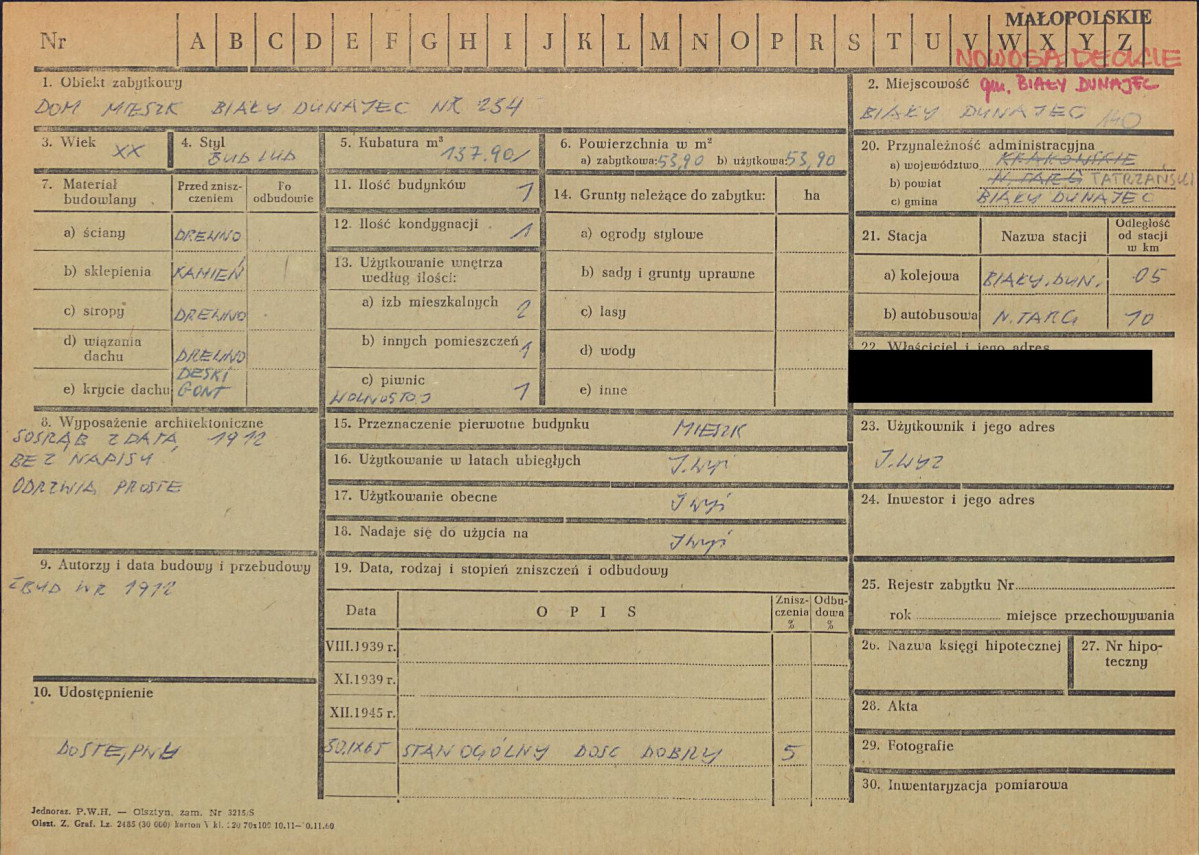 MAŁOPOLSKIE
Nr A B C D E F G H I J K L M N O P R S T U V W X Y Z
NOWOSĄDECKIE
1. Obiekt zabytkowy
DOM MIESZK BIAŁY DUNAJEC NR 254
2. Miejscowość gm. BIAŁY DUNAJEC
BIAŁY DUNAJEC 140
3. Wiek XX
4. Styl
BUD LUD
5. Kubatura m³
137.90
6. Powierzchnia w m²
a) zabytkowa: 53,90 b) użytkowa: 53,90
20. Przynależność administracyjna
a) województwo KRAKOWSKIE
b) powiat N. TARG TATRZAŃSKI
c) gmina BIAŁY DUNAJEC
7. Materiał budowlany
Przed zniszczeniem
Po odbudowie
a) ściany DREWNO
b) sklepienia KAMIEŃ
c) stropy DREWNO
d) wiązania dachu DREWNO
e) krycie dachu DESKI
GONT
11. Ilość budynków 1
12. Ilość kondygnacji 1
13. Użytkowanie wnętrza
według ilości:
a) izb mieszkalnych 2
b) innych pomieszczeń 1
c) piwnic 1
WOLNOSTOJ
14. Grunty należące do zabytku: ha
a) ogrody stylowe
b) sady i grunty uprawne
c) lasy
d) wody
e) inne
21. Stacja Nazwa stacji Odległość od stacji w km
a) kolejowa BIAŁY. DUN. 05
b) autobusowa N. TARG 10
22. Właściciel i jego adres
8. Wyposażenie architektoniczne
SOSRĄB Z DATĄ 1912
BEZ NAPISU
ODRZWIA PROSTE
15. Przeznaczenie pierwotne budynku MIESZK
16. Użytkowanie w latach ubiegłych J. wyż
17. Użytkowanie obecne J wyż
18. Nadaje się do użycia na J wyż
23. Użytkownik i jego adres
J. WYŻ
24. Inwestor i jego adres
9. Autorzy i data budowy i przebudowy
ZBUD W R 1912
19. Data, rodzaj i stopień zniszczeń i odbudowy
Data OPIS Zniszczenia % Odbudowa %
VIII.1939 r.
XI.1939 r.
XII.1945 r.
30.IX65 STAN OGÓLNY DOSC DOBRY 5
25. Rejestr zabytku Nr
rok miejsce przechowywania
26. Nazwa księgi hipotecznej
27. Nr hipoteczny
28. Akta
29. Fotografie
30. Inwentaryzacja pomiarowa
10. Udostępnienie
DOSTĘPNY
Jednoraz. P.W.H. — Olsztyn. zam. Nr 3215/S
Olszt. Z. Graf. Lz. 2485 (30 000) karton